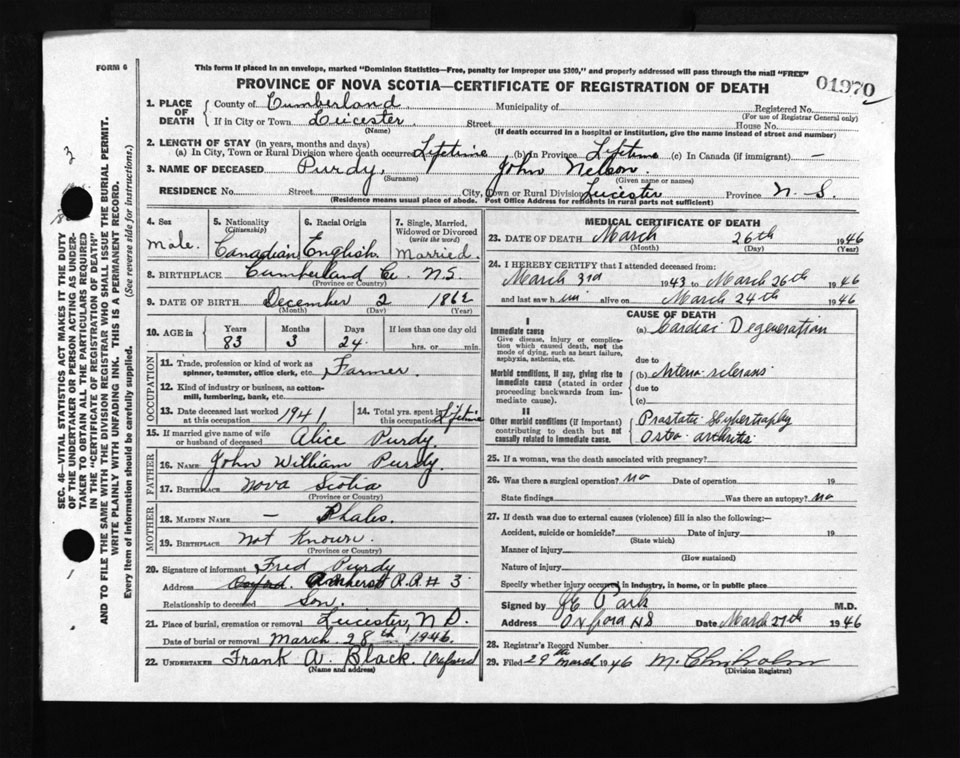 FORM 6
This form if placed in an envelope, marked "Dominion Statistics—Free, penalty for improper use $300," and properly addressed will pass through the mail "FREE"
PROVINCE OF NOVA SCOTIA—CERTIFICATE OF REGISTRATION OF DEATH
01970
1. PLACE OF DEATH
County of Cumberland Municipality of Registered No.
(For use of Registrar General only)
If in City or Town Leicester Street House No.
(Name) (If death occurred in a hospital or institution, give the name instead of street and number)
2. LENGTH OF STAY (in years, months and days)
(a) In City, Town or Rural Division where death occurred Lifetime (b) In Province Lifetime (c) In Canada (if immigrant) —
3. NAME OF DECEASED Purdy, John Nelson.
(Surname) (Given name or names)
RESIDENCE No. Street City, Town or Rural Division Leicester Province N.S.
(Residence means usual place of abode. Post Office Address for residents in rural parts not sufficient)
4. Sex
Male.
5. Nationality
(Citizenship)
Canadian
6. Racial Origin
English.
7. Single, Married, Widowed or Divorced
(write the word)
Married.
8. BIRTHPLACE Cumberland Co. N.S.
(Province or Country)
9. DATE OF BIRTH December 2 1862
(Month) (Day) (Year)
10. AGE in
Years Months Days If less than one day old
83 3 24 hrs. or min.
OCCUPATION
11. Trade, profession or kind of work as
spinner, teamster, office clerk, etc. Farmer.
12. Kind of industry or business, as cotton-
mill, lumbering, bank, etc.
13. Date deceased last worked
at this occupation 1941
14. Total yrs. spent in
this occupation Lifetime
15. If married give name of wife
or husband of deceased Alice Purdy.
FATHER
16. NAME John William Purdy.
17. BIRTHPLACE Nova Scotia
(Province or Country)
MOTHER
18. MAIDEN NAME — Phales.
19. BIRTHPLACE Not Known.
(Province or Country)
20. Signature of informant Fred Purdy
Address Oxford. Amherst R.R # 3
Relationship to deceased Son.
21. Place of burial, cremation or removal Leicester, N.S.
Date of burial or removal March 28th 1946.
22. UNDERTAKER Frank A. Black. Oxford
(Name and address)
MEDICAL CERTIFICATE OF DEATH
23. DATE OF DEATH March 26th 1946
(Month) (Day)
24. I HEREBY CERTIFY that I attended deceased from:
March 3rd 1943 to March 26th 1946
and last saw him alive on March 24th 1946
CAUSE OF DEATH
I
Immediate cause
Give disease, injury or complication which caused death, not the mode of dying, such as heart failure, asphyxia, asthenia, etc.
(a) Cardiac Degeneration
due to
Morbid conditions, if any, giving rise to immediate cause (stated in order proceeding backwards from immediate cause).
(b) Arterio-sclerosis
due to
(c)
II
Other morbid conditions (if important) contributing to death but not causally related to immediate cause.
Prostatic Hypertrophy
Osteo-arthritis
25. If a woman, was the death associated with pregnancy?
26. Was there a surgical operation? no Date of operation 19
State findings Was there an autopsy? no
27. If death was due to external causes (violence) fill in also the following:—
Accident, suicide or homicide? Date of injury 19
(State which)
Manner of injury
(How sustained)
Nature of injury
Specify whether injury occurred in industry, in home, or in public place
Signed by Park M.D.
Address Oxford NS Date March 27th 1946
28. Registrar's Record Number
29. Filed 29th March 1946 M. Chisholm
(Division Registrar)
SEC. 46—VITAL STATISTICS ACT MAKES IT THE DUTY
OF THE UNDERTAKER OR PERSON ACTING AS UNDER-
TAKER TO OBTAIN ALL THE PARTICULARS REQUIRED
IN THE "CERTIFICATE OF REGISTRATION OF DEATH"
AND TO FILE THE SAME WITH THE DIVISION REGISTRAR WHO SHALL ISSUE THE BURIAL PERMIT.
WRITE PLAINLY WITH UNFADING INK. THIS IS A PERMANENT RECORD.
Every item of information should be carefully supplied. (See reverse side for instructions.)